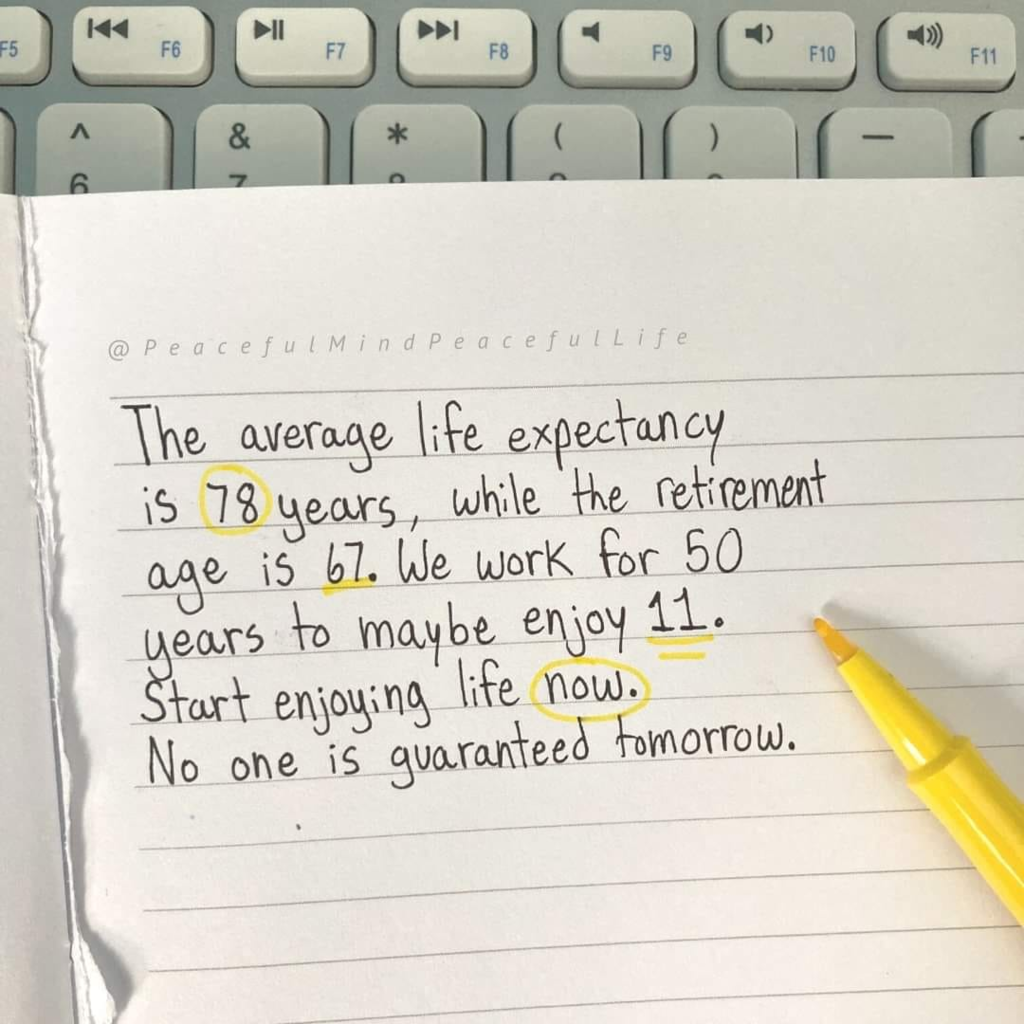 F5 F6 F7 F8 F9 F10 F11
^ & * ( ) —
6 7
@PeacefulMindPeacefulLife
The average life expectancy
is 78 years, while the retirement
age is 67. We work for 50
years to maybe enjoy 11.
Start enjoying life now.
No one is guaranteed tomorrow.